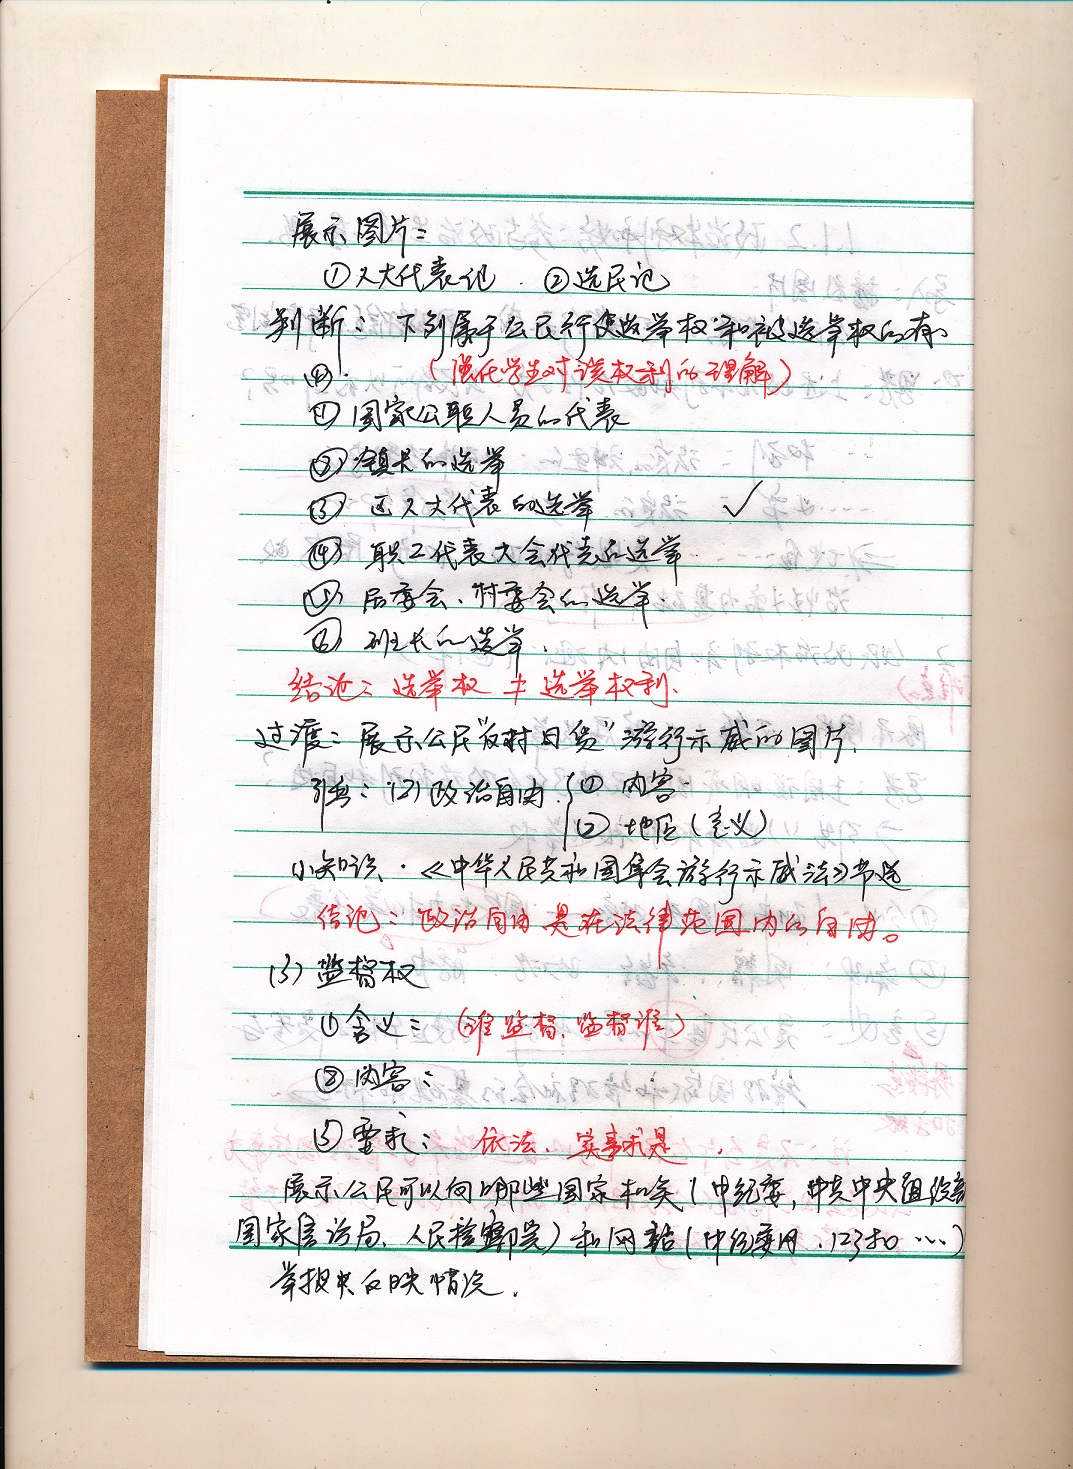 展示图片：
①人大代表证 ②选民证
判断：下列属于公民行使选举权和被选举权的有
④. （强化学生对该权利的理解）
① 国家公职人员的代表
② 镇长的选举
③ 区人大代表的选举 ✓
④ 职工代表大会代表的选举
⑤ 居委会、村委会的选举
⑥ 班长的选举.
结论：选举权 ≠ 选举权利.
过渡：展示公民“反对日货”游行示威的图片.
引出：(2)政治自由 ① 内容
② 地位（意义）
小知识.《中华人民共和国集会游行示威法》节选
结论：政治自由是在法律范围内的自由。
(3) 监督权
① 含义：（谁监督、监督谁）
② 内容：
③ 要求：依法、实事求是
展示公民可以向哪些国家机关（中纪委，中共中央组织部
国家信访局、人民检察院）和网站（中纪委网.12380 …）
举报或反映情况.